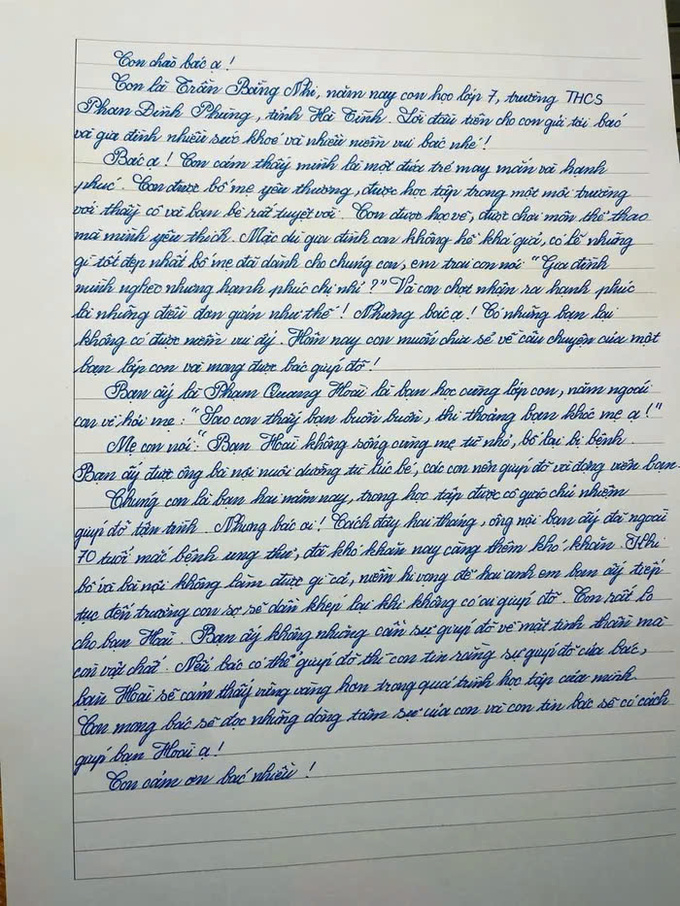 Con chào bác ạ!
Con là Trần Băng Nhi, năm nay con học lớp 7, trường THCS
Phan Đình Phùng, tỉnh Hà Tĩnh. Lời đầu tiên cho con gửi tới bác
và gia đình nhiều sức khoẻ và nhiều niềm vui bác nhé!
Bác ạ! Con cảm thấy mình là một đứa trẻ may mắn và hạnh
phúc. Con được bố mẹ yêu thương, được học tập trong một môi trường
với thầy cô và bạn bè rất tuyệt vời. Con được học vẽ, được chơi môn thể thao
mà mình yêu thích. Mặc dù gia đình con không hề khá giả, có lẽ những
gì tốt đẹp nhất bố mẹ đã dành cho chúng con, em trai con nói "Gia đình
mình nghèo nhưng hạnh phúc chị nhỉ?" Và con chợt nhận ra hạnh phúc
là những điều đơn giản như thế! Nhưng bác ạ! Có những bạn lại
không có được niềm vui ấy. Hôm nay con muốn chia sẻ về câu chuyện của một
bạn lớp con và mong được bác giúp đỡ!
Bạn ấy là Phạm Quang Hoài là bạn học cùng lớp con, năm ngoái
con về hỏi mẹ: "Sao con thấy bạn buồn buồn, thi thoảng bạn khóc mẹ ạ!"
Mẹ con nói: "Bạn Hoài không sống cùng mẹ từ nhỏ, bố lại bị bệnh.
Bạn ấy được ông bà nội nuôi dưỡng từ lúc bé, các con nên giúp đỡ và động viên bạn.
Chúng con là bạn hai năm nay, trong học tập được cô giáo chủ nhiệm
giúp đỡ tận tình. Nhưng bác ơi! Cách đây hai tháng, ông nội bạn ấy đã ngoài
70 tuổi mắc bệnh ung thư, đã khó khăn nay càng thêm khó khăn. Khi
bố và bà nội không làm được gì cả, niềm hi vọng để hai anh em bạn ấy tiếp
tục đến trường con sợ sẽ dần khép lại khi không có ai giúp đỡ. Con rất lo
cho bạn Hoài. Bạn ấy không những cần sự giúp đỡ về mặt tinh thần mà
còn vật chất. Nếu bác có thể giúp đỡ thì con tin rằng sự giúp đỡ của bác,
bạn Hoài sẽ cảm thấy vững vàng hơn trong quá trình học tập của mình.
Con mong bác sẽ đọc những dòng tâm sự của con và con tin bác sẽ có cách
giúp bạn Hoài ạ!
Con cảm ơn bác nhiều!